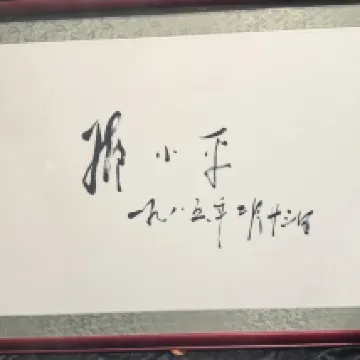 邓小平
一九八五年二月十三日